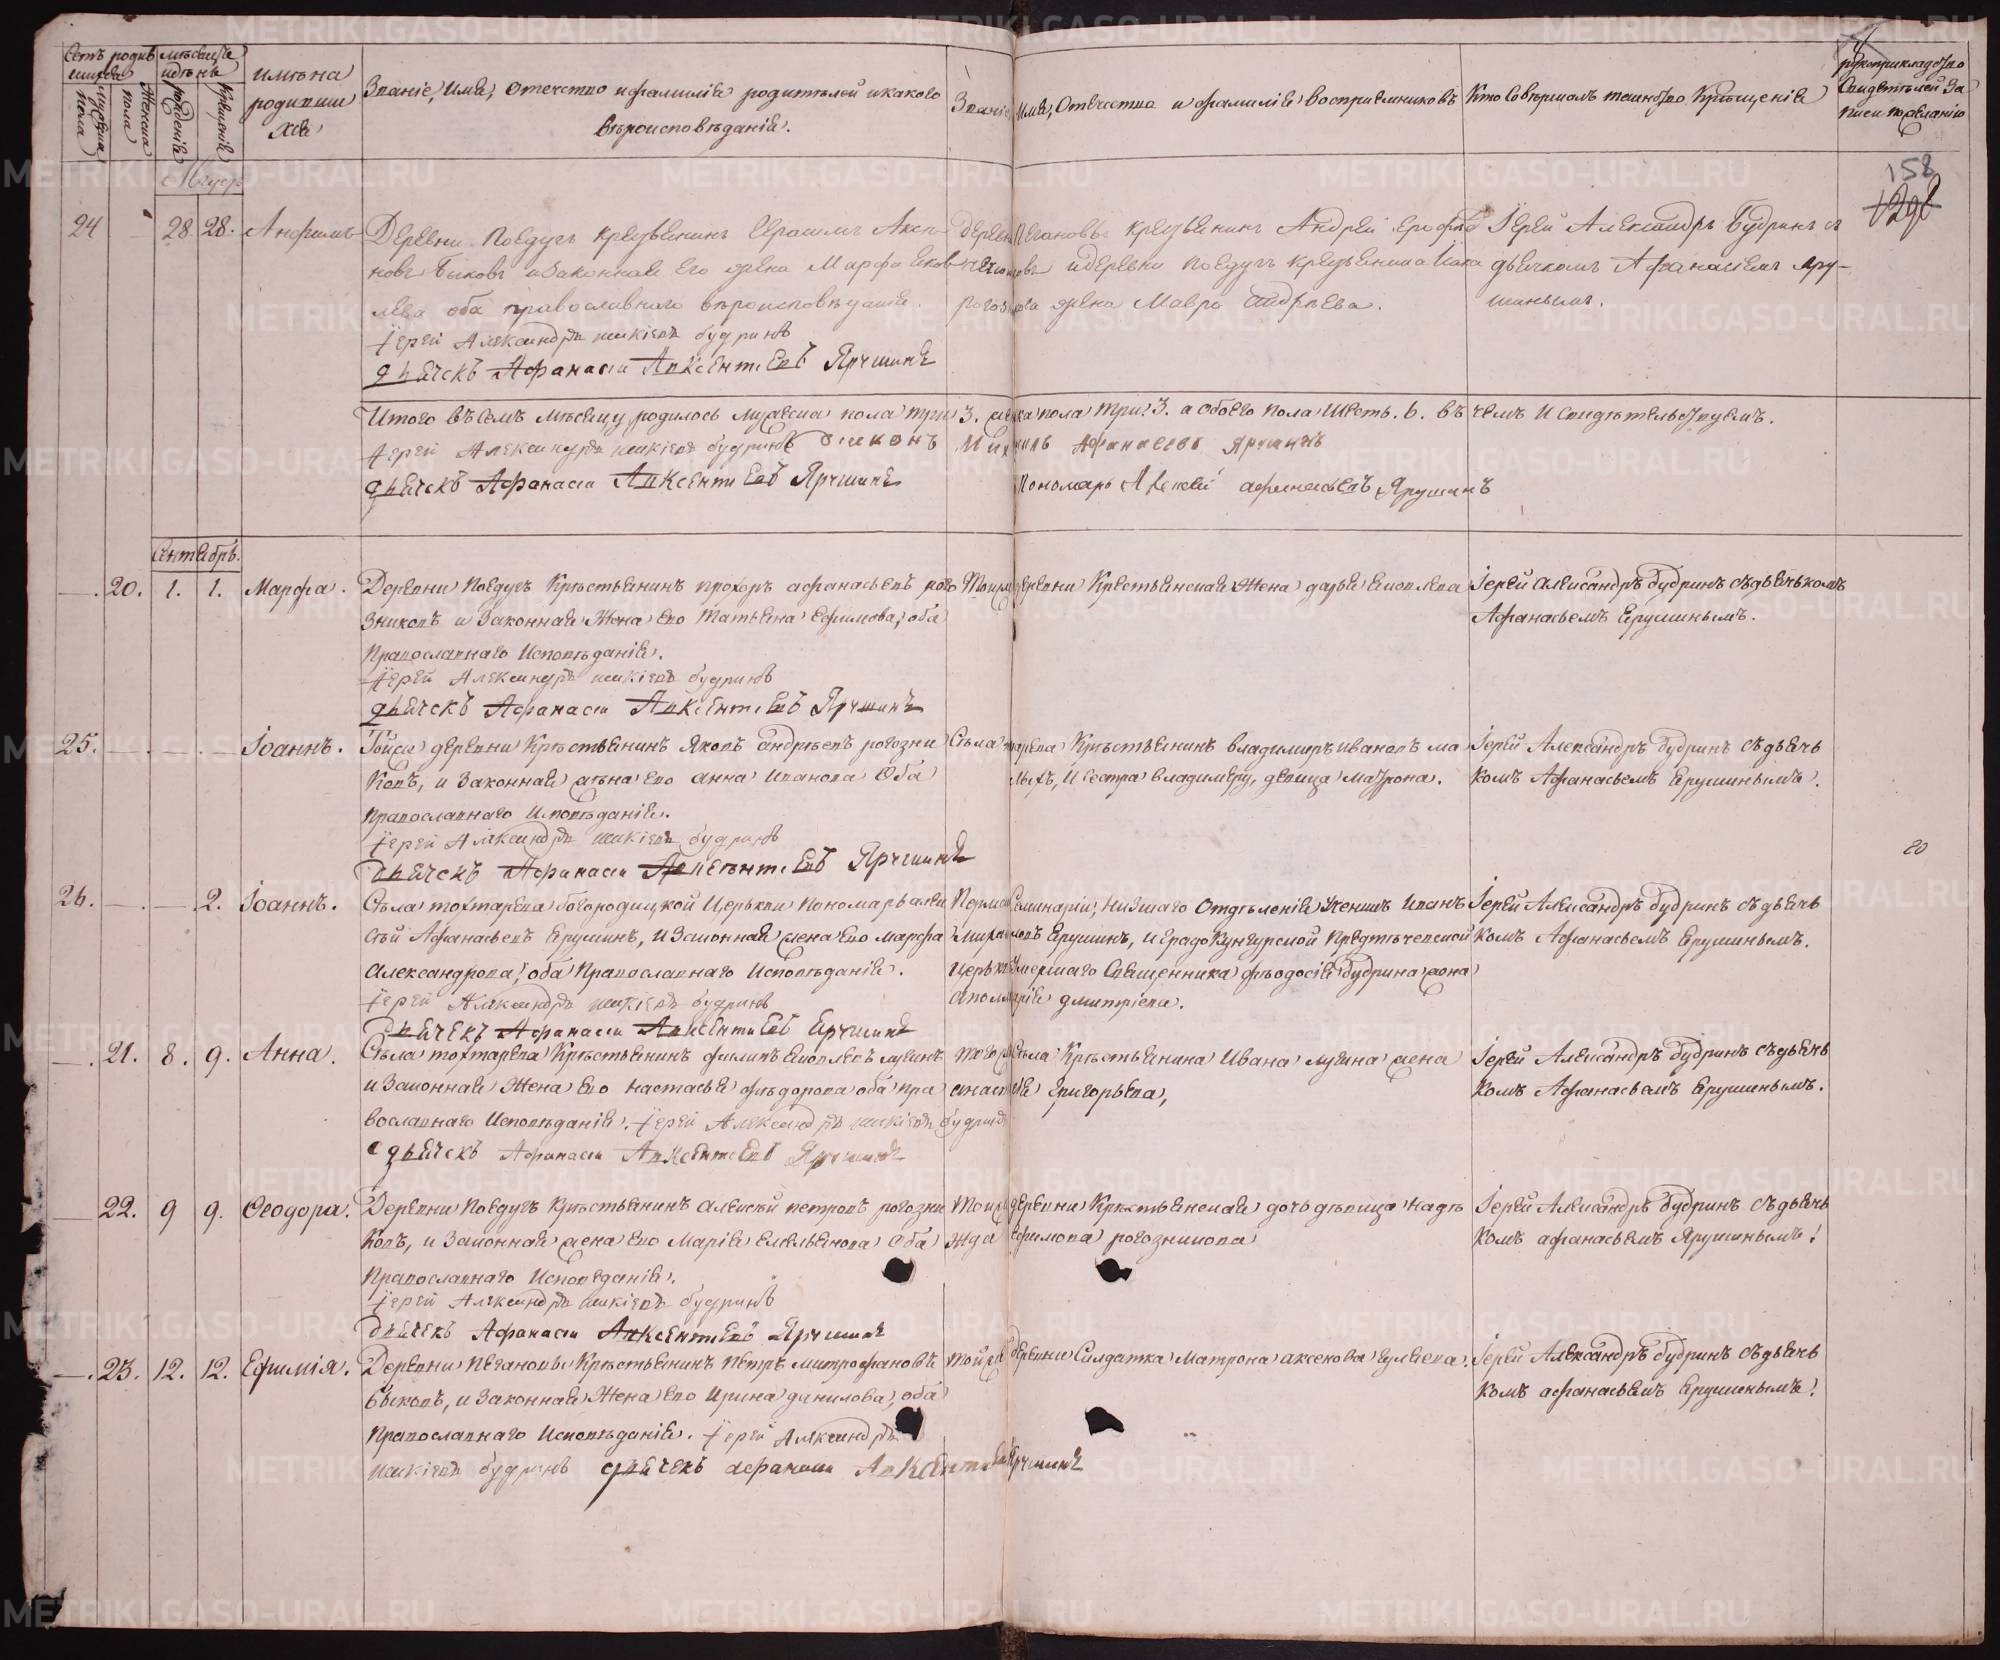 Счетъ родив
шихся
мѣсяцъ
и день
мужеска
пола
женска
пола
рожденія
крещенія
имѣна
родивши
хся
Званіе, имя, отечество и фамилія родителей и какого
вѣроисповѣданія.
Званіе, имя, отечество и фамилія воспріемниковъ
Кто совершалъ таинство крещенія
рукоприкладство
свидѣтелей за
писи по желанію
158
Августъ
24 28. 28. Анфимъ
Деревни Поедугъ крестьянинъ Герасимъ Аксе
новъ Быковъ и законная его жена Марфа Яков
лева оба православнаго вѣроисповѣданія.
Іерей Александръ Будринъ
дьячекъ Афанасій Авксентіевъ Ярушинъ
деревни Пегановы крестьянинъ Андрей Ерофѣе
и деревни Поедугъ крестьянина
жена Мавра Андрѣева.
Іерей Александръ Будринъ съ
дьячкомъ Афанасіемъ Яру-
шинымъ.
Итого въ семъ мѣсяцу родилось мужеска пола три 3. женска пола три 3. а обоего пола шесть. 6. въ чемъ и свидѣтельствуемъ.
Іерей Александръ Будринъ дьяконъ Михаилъ Афанасевъ Ярушинъ
дьячекъ Афанасій Авксентіевъ Ярушинъ
Пономарь Алексей Афанасьевъ Ярушинъ
Сентябрь.
20. 1. 1. Марфа.
Деревни Поедугъ крестьянинъ Прохоръ Афанасьевъ рого
зниковъ и законная жена его Татьяна Ефимова, оба
православнаго исповѣданія.
Іерей Александръ Будринъ
дьячекъ Афанасій Авксентіевъ Ярушинъ
Той же деревни крестьянская жена дарья
Іерей Александръ Будринъ съ дьячькомъ
Афанасьемъ Ярушинымъ.
25. Іоаннъ.
Тойже деревни крестьянинъ Яковъ Андрѣевъ рогозни
ковъ, и законная жена его Анна Иванова оба
православнаго исповѣданія.
Іерей Александръ Будринъ
дьячекъ Афанасій Авксентіевъ Ярушинъ
Села Тохтарева крестьянинъ владимиръ ивановъ ма
лыхъ, и сестра владимеру, девица матрона.
Іерей Александръ Будринъ съ дьячь
комъ Афанасьемъ Ярушинымъ.
20
26. 2. Іоаннъ.
Села тохтарева богородицкой церькви пономарь алек
сѣй Афанасьевъ Ярушинъ, и законная жена его марфа
Александрова, оба православнаго исповѣданія.
Іерей Александръ Будринъ
дьячекъ Афанасій Авксентіевъ Ярушинъ
Пермской Семинаріи, низшаго отдѣленія ученикъ иванъ
Михайловъ Ярушинъ, и градо Кунгурской Предтечевской
церькви умершаго священника феодосія будрина жена
аполинарія дмитріева.
Іерей Александръ Будринъ съ дьячь
комъ Афанасьемъ Ярушинымъ.
21. 8. 9. Анна.
Села тохтарева крестьянинъ филипъ
и законная жена его настасья федорова оба пра
вославнаго исповѣданія. Іерей Александръ Будринъ
дьячекъ Афанасій Авксентіевъ Ярушинъ
тогоже села крестьянина ивана жена
анастасія григорьева,
Іерей Александръ Будринъ съ дьячь
комъ Афанасьемъ Ярушинымъ.
22. 9 9. Ѳеодора.
Деревни Поедугъ крестьянинъ алексѣй петровъ рогозни
ковъ, и законная жена его Марія емельянова оба
православнаго исповеданія.
Іерей Александръ Будринъ
дьячекъ Афанасій Авксентіевъ Ярушинъ
Тойже деревни крестьянская дочь дѣвица надѣ
жда ефимова рогозникова
Іерей Александръ Будринъ съ дьячь
комъ афанасьемъ Ярушинымъ.
23. 12. 12. Ефимія.
Деревни Пегановы крестьянинъ петръ митрофановъ
быковъ, и законная жена его Ирина данилова, оба
православнаго исповѣданія. Іерей Александръ
Будринъ дьячекъ афанасій Авксентіевъ Ярушинъ
тойже деревни салдатка матрона аксенова
Іерей Александръ Будринъ съ дьячь
комъ афанасьемъ Ярушинымъ.
METRIKI.GASO-URAL.RU